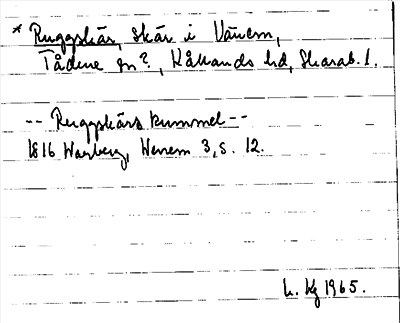 * Ruggskär, skär i Vänern,
Tådene sn?, Kållands hd, Skarab. l.
-- Ruggskärs kummel --
1816 Warberg, Wenern 3, s. 12.
L. Kg 1965.